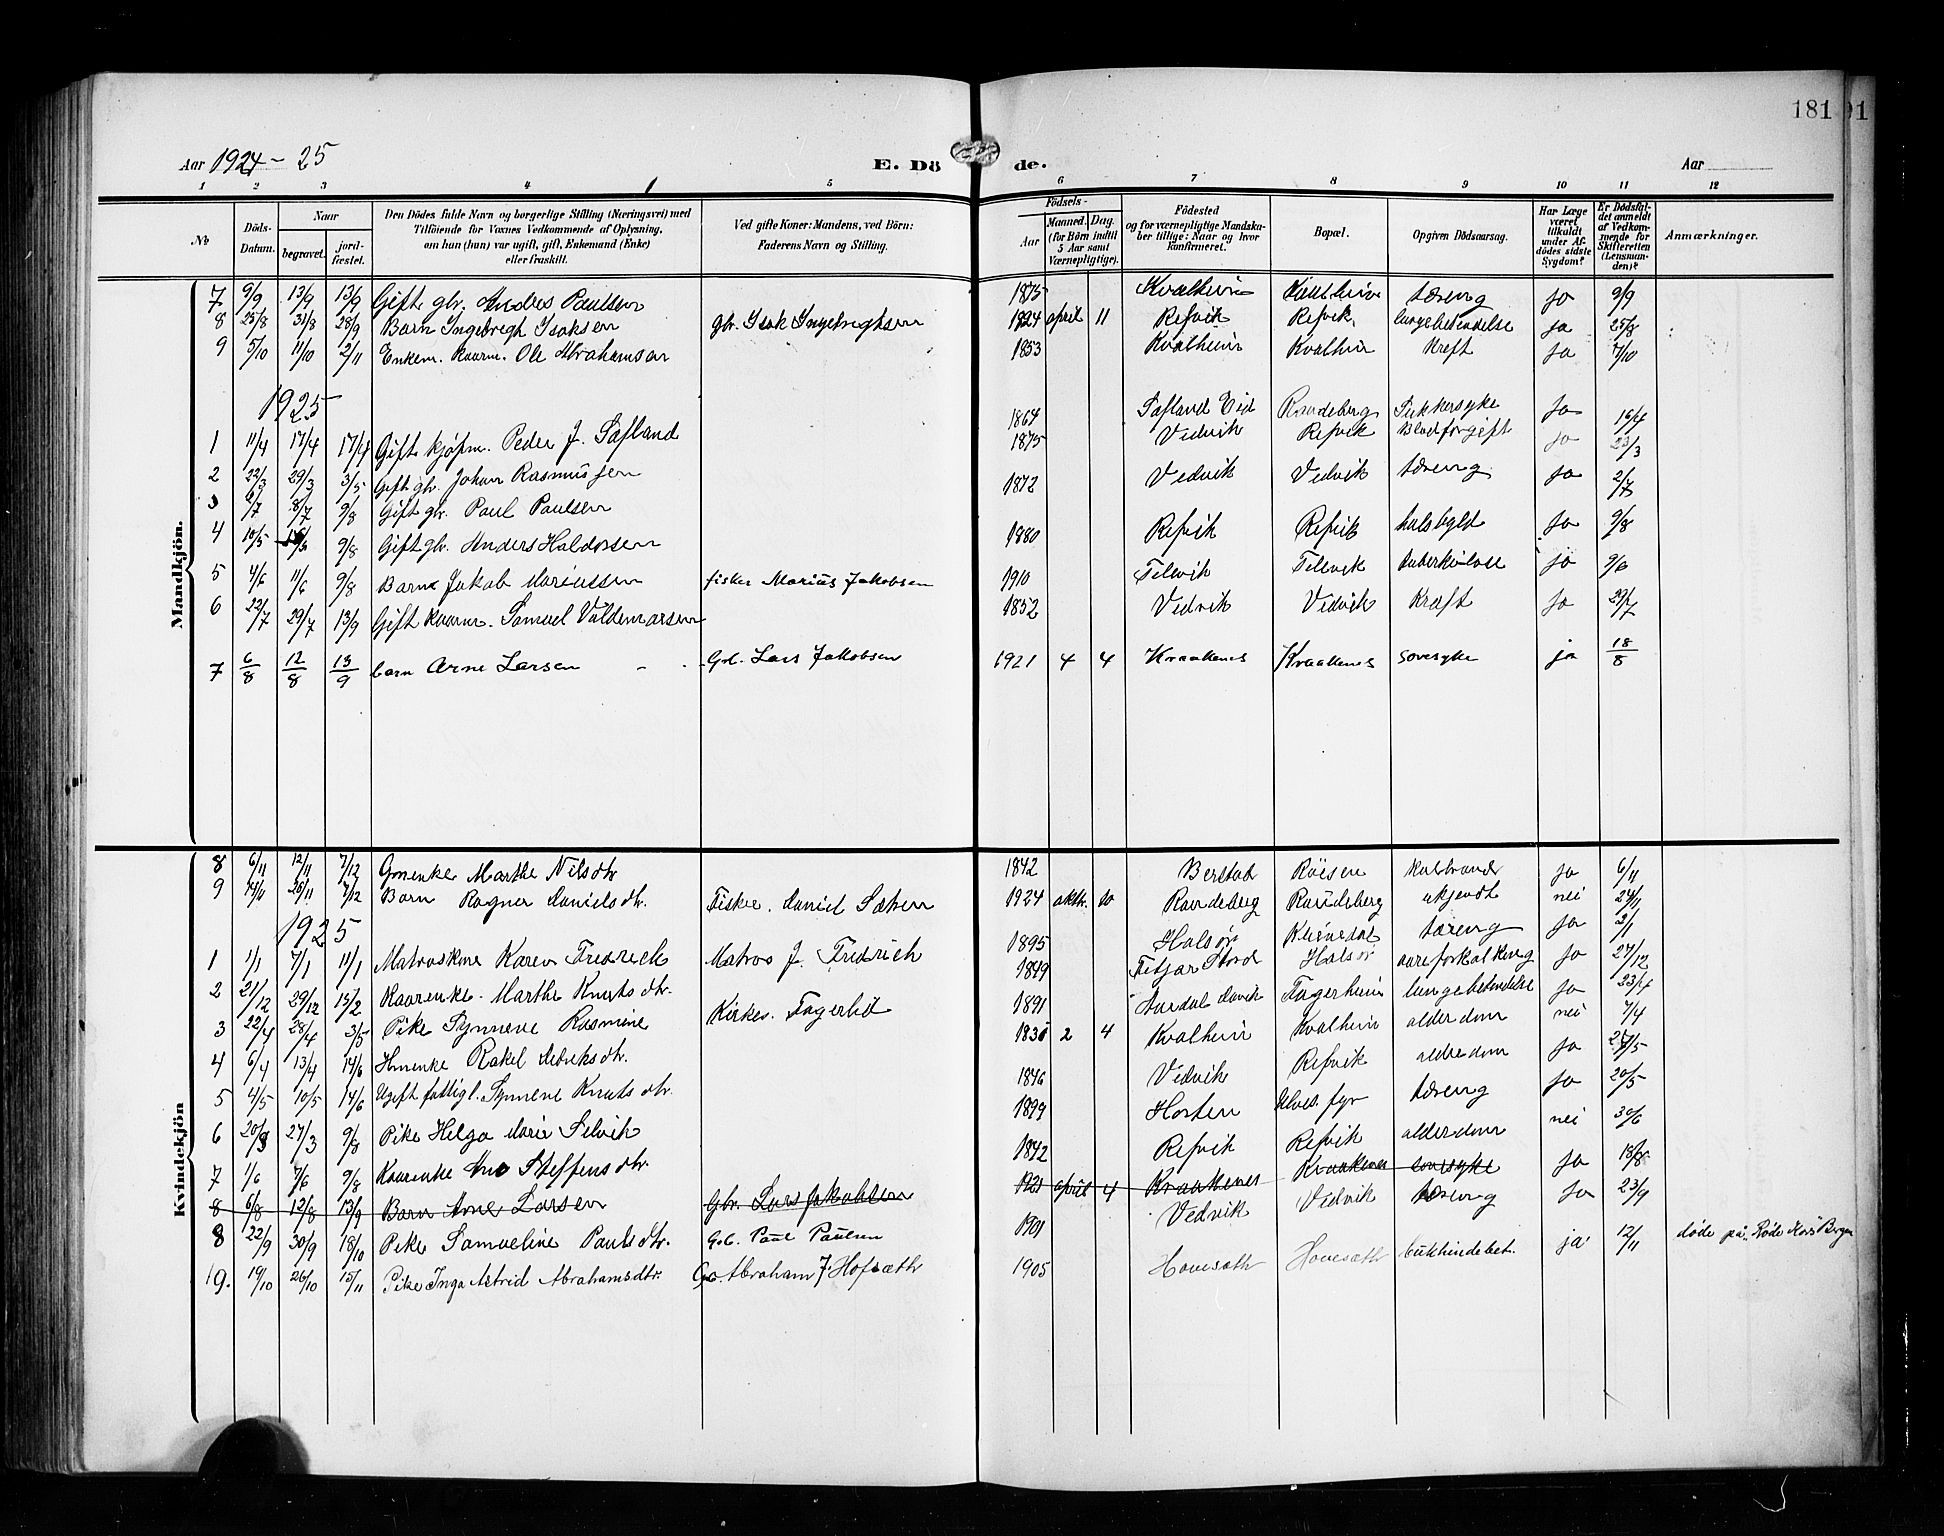 181
Aar 1924-25
E. Dö de.
Aar
1 2 3 4 5 6 7 8 9 10 11 12
No
Döds-Datum.
Naar
begravet.
jord-fæstet.
Den Dödes fulde Navn og borgerlige Stilling (Næringsvei) med
Tilföiende for Voxnes Vedkommende af Oplysning,
om han (hun) var ugift, gift, Enkemand (Enke)
eller fraskilt.
Ved gifte Koner: Mandens, ved Börn:
Faderens Navn og Stilling.
Födsels-
Aar
Maaned. Dag.
(for Börn indtil 5 Aar samt Værnepligtige).
Födested
og for værnepligtige Mandska-
ber tillige: Naar og hvor
konfirmeret.
Bopæl.
Opgiven Dödsaarsag.
Har Læge været tilkaldt under Af-dödes sidste Sygdom?
Er Dödsfal-det anmeldt af Vedkom-mende for Skifteretten (Lensman-den)?
Anmærkninger.
Mandkjön.
7 9/9 13/9 13/9 Gift gbr. Andres Paulsen 1875 Kvalheim Kvalheim tæreng Ja 9/9
8 25/8 31/8 28/9 Barn Ingebrigt Isaksen gbr. Isak Ingebrigtsen 1924 april 11 Refvik Refvik lungebetendelse ja 25/8
9 5/10 11/10 2/11 Enkem. kaarm. Ole Abrahamsen 1853 Kvalheim Kvalheim Kreft Ja 7/10
1925
1 11/4 17/4 17/4 Gift kjøpm. Peder J. Safland 1867 Safland Eid Raudeberg Sukkersyke Ja 16/4
2 22/3 29/3 3/5 Gift gbr. Johan Rasmussen 1875 Vedvik Refvik Blodforgift Ja 23/3
3 2/7 8/7 9/8 Gift gbr. Paul Paulsen 1872 Vedvik Vedvik tæreng Ja 2/7
4 10/5 15/5 9/8 Gift gbr. Anders Haldorsen 1880 Refvik Refvik halsbyld Ja 9/8
5 4/6 11/6 9/8 Barn Jakob Mariussen fisker Marius Jakobsen 1910 Filevik Filevik tuberkulose ja 9/6
6 22/7 29/7 13/9 Gift kaarm. Samuel Valdemarsen 1852 Vedvik Vedvik Kræft Ja 29/7
7 6/8 12/8 13/9 barn Arne Larsen Gbr. Lars Jakobsen 1921 4 4 Kraakenes Kraakenes sovesyke ja 18/8
Kvindekjön
8 6/11 12/11 7/12 Gmenke Marthe Nilsdtr 1842 Berstad Röisen Kolbrand Ja 6/11
9 14/11 26/11 7/12 Barn Ragner Danielsdtr. Fisker. Daniel Sætren 1924 oktbr. 10 Raudeberg Raudeberg ukjendt nei 24/11
1925
1 1/1 7/1 11/1 Matroskone Karen Fredrich Matros J. Fredrich 1895 Halsør tæreng Ja 2/1
2 21/12 29/12 15/2 Kaarenke. Marthe Knutsdtr. 1849 Fitjar Stord Halsør aareforkalkning Ja 27/12
3 22/4 28/4 3/5 Pike Synneve Rasmine Kirkes. Fagerlid 1891 Aardal Davik Fagerheim lungebetendelse Ja 23/4
4 6/4 13/4 14/6 Hmenke Rakel Didriksdtr. 1836 2 4 Kvalheim Kvalheim alderdom nei 7/4
5 4/5 10/5 14/6 Ugift fattigl. Synneve Knutsdtr. 1846 Vedvik Refvik aldredom Ja
6 20/3 27/3 9/8 Pike Helga Marie Silvik 1899 Hosten Ulves. fyr tæreng Ja 20/5
7 1/6 7/6 9/8 Kaarenke Ane Steffensdtr. 1842 Refvik Refvik alderdom nei 30/6
8 6/8 12/8 13/9 Barn Arne Larsen Gbr. Lars Jakobsen 1921 april 4 Kraakenes Kraakenes sovesyke Ja 18/8
8 22/9 30/9 18/10 Pike Samueline Paulsdtr. Gbr. Paul Paulsen 1901 Vedvik Vedvik tæreng Ja 23/9
19. 19/10 26/10 15/11 Pike Inga Astrid Abrahamsdtr. Gb. Abraham J. Hofsæth 1905 Hovesæth Hovesæth bukhindebet. ja 12/11 døde på Røde Kors Bergen